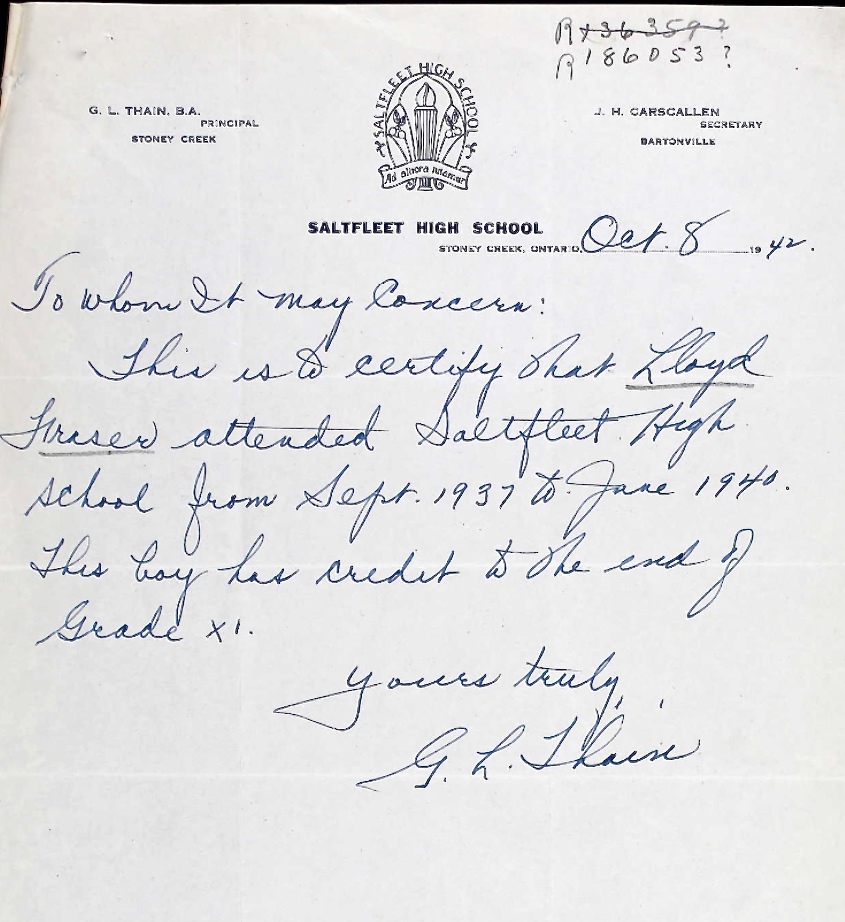 R186053?
SALTFLEET HIGH SCHOOL
G. L. THAIN, B.A.
PRINCIPAL
STONEY CREEK
J. H. CARSCALLEN
SECRETARY
BARTONVILLE
Ad altiora nitamur
SALTFLEET HIGH SCHOOL
STONEY CREEK, ONTARIO, Oct. 8 1942.
To whom It may Concern:
This is to certify that Lloyd
Fraser attended Saltfleet High
School from Sept. 1937 to June 1940.
This boy has credit to the end of
Grade XI.
Yours truly,
G. L. Thain